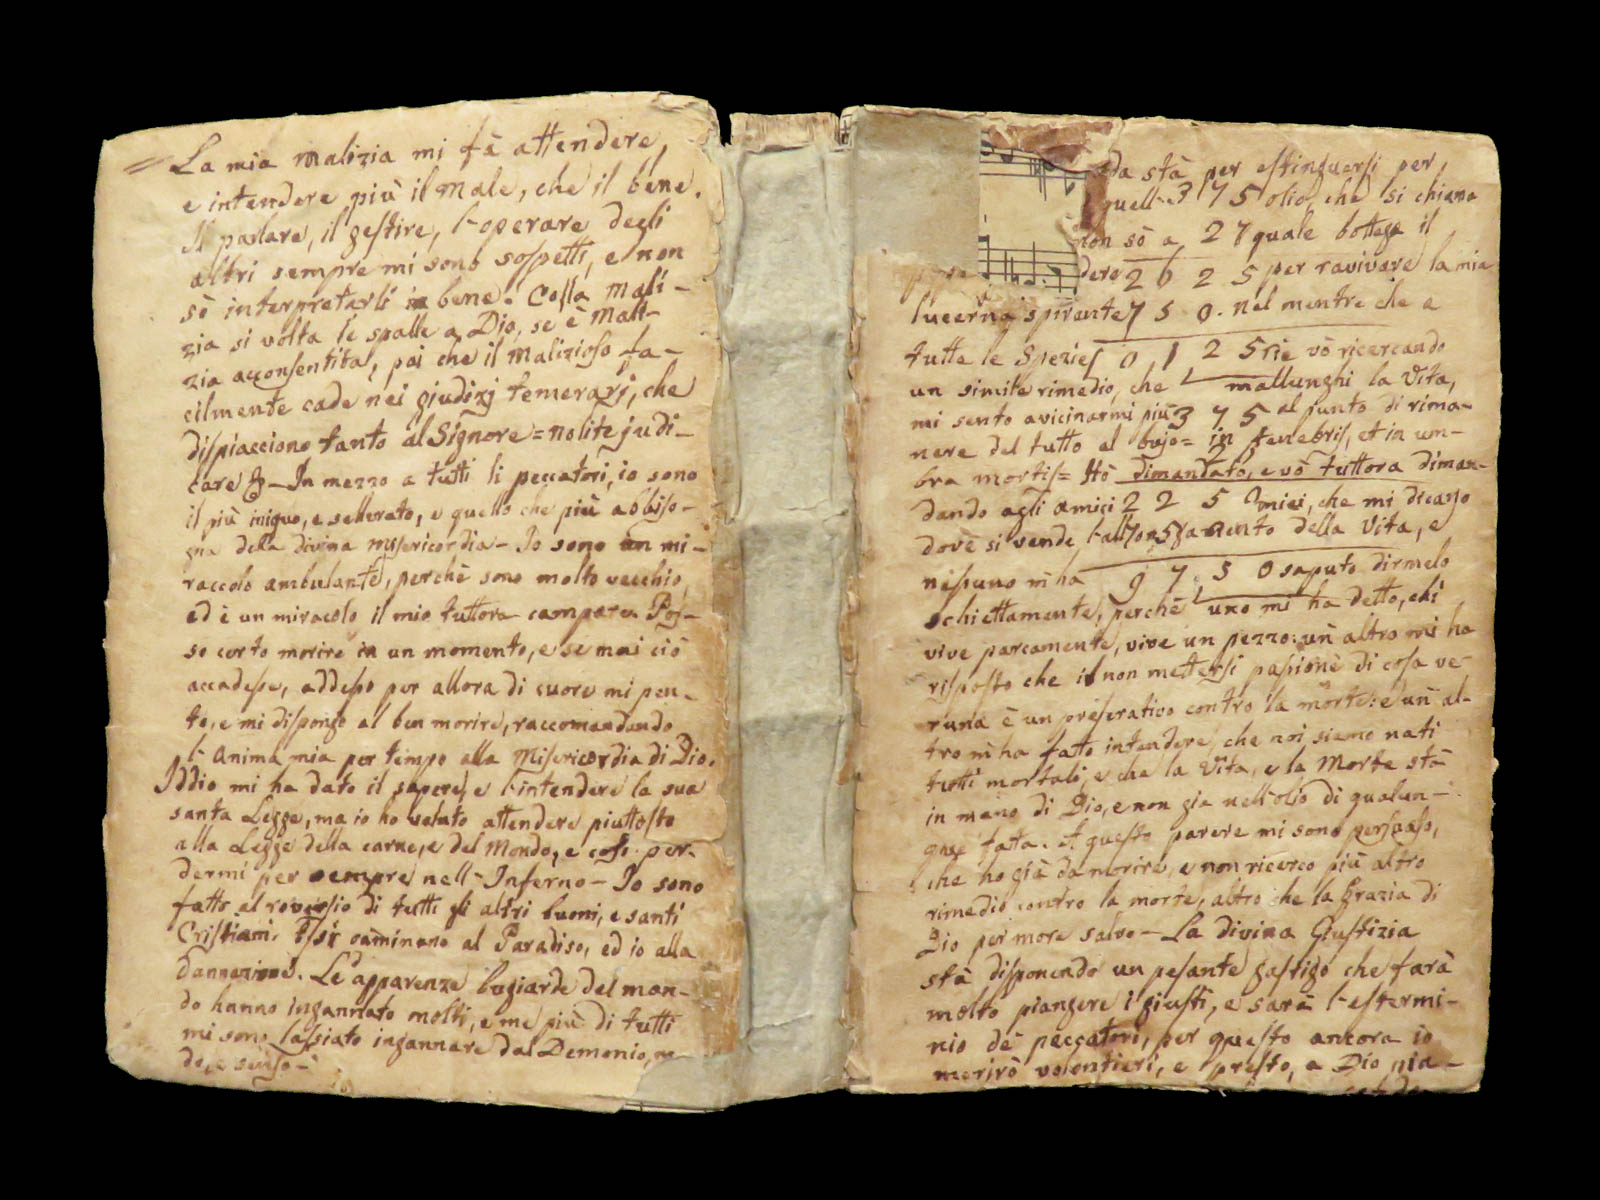 La mia malizia mi fà attendere,
e intendere più il male, che il bene.
Il parlare, il gestire, l'operare degli
altri sempre mi sono sospetti, e non
sò interpretarli in bene. Colla mali-
zia si volta le spalle a Dio, se è mali-
zia acconsentita, poi che il malizioso fa-
cilmente cade nei giudizj temerarj, che
dispiacciono tanto al Signore = nolite judi-
care &. - In mezzo a tutti li peccatori, io sono
il più iniquo, e sellerato, e quello che più abbiso-
gna della divina misericordia - Io sono un mi-
racolo ambulante, perchè sono molto vecchio,
ed è un miracolo il mio tuttora campare. Pos-
so certo morire in un momento, e se mai ciò
accadesse, addesso per allora di cuore mi pen-
to, e mi dispongo al ben morire, raccomandando
l'Anima mia per tempo alla Misericordia di Dio.
Iddio mi ha dato il sapere, e l'intendere la sua
santa Legge, ma io ho voluto attendere piuttosto
alla Legge della carne, e del Mondo, e così per-
dermi per sempre nell'Inferno - Io sono
fatto al roversio di tutti gli altri buoni, e santi
Cristiani. Essi caminano al Paradiso, ed io alla
dannazione. Le apparenze bugiarde del mon-
do hanno ingannato molti, e me più di tutti
mi sono lassiato ingannare dal Demonio,
do, e senso -
da stà per estinguersi per
quell 375 olio, che si chiama
non sò a 27 quale bottega il
dere 2625 per ravivare la mia
lucerna spirante 750. nel mentre che a
tutte le Spezie 0125 rie vò ricercando
un simile rimedio, che mallunghi la Vita,
mi sento avicinarmi più 375 al punto di rima-
nere del tutto al bujo = in tenebris, et in um-
bra mortis = Hò dimandato, e vò tuttora diman-
dando agli amici 225 miei, che mi dicano
dovè si vende l'allongamento della Vita, e
nessuno m'ha 9750 saputo dirmelo
schiettamente, perchè uno mi ha detto, chi
vive parcamente, vive un pezzo: un altro mi ha
risposto che il non mettersi passione di cosa ve-
runa è un preserativo contro la morte: e un al-
tro m'ha fatto intendere, che noi siamo nati
tutti mortali, e che la Vita, e la Morte stà
in mano di Dio, e non gia nell'olio di qualun-
que fata. A questo parere mi sono persuaso,
che ho già da morire, e non ricerco più altro
rimedio contro la morte, altro che la Grazia di
Dio per more salvo - La divina Giustizia
stà disponendo un pesante gastigo che farà
molto piangere i giusti, e sarà l'estermi-
nio de peccatori, per questo ancora io
morirò volontieri, e presto, a Dio pia-